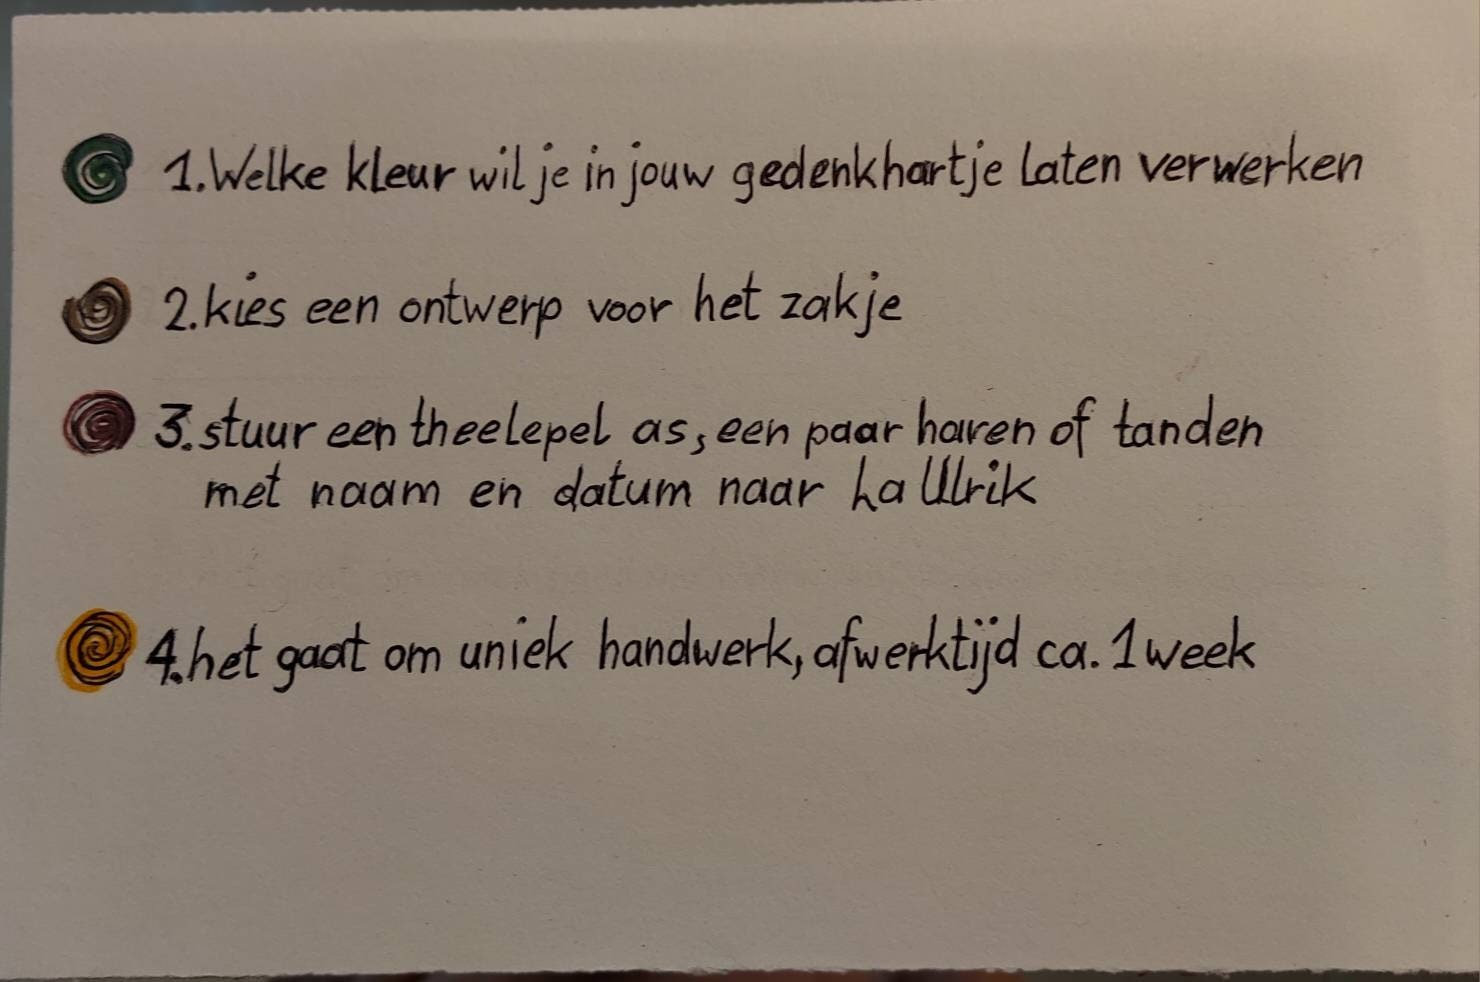 1. Welke kleur wil je in jouw gedenkhartje laten verwerken
2. kies een ontwerp voor het zakje
3. stuur een theelepel as, een paar haren of tanden
met naam en datum naar La Ulrik
4. het gaat om uniek handwerk, afwerktijd ca. 1 week